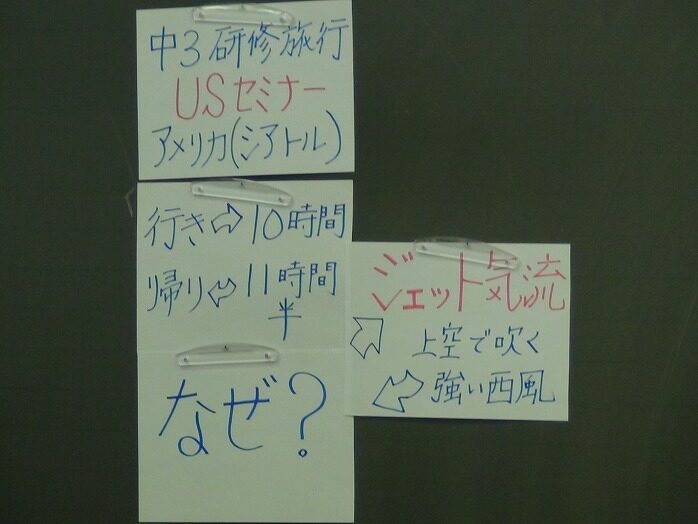 中3研修旅行
USセミナー
アメリカ(シアトル)
行き⇨10時間
帰り⇦11時間
半
なぜ?
ジェット気流
上空で吹く
強い西風